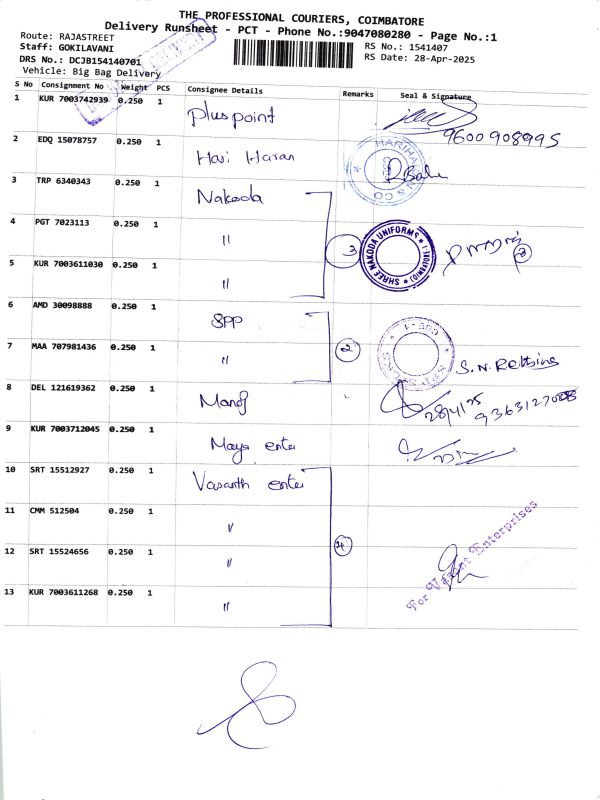 THE PROFESSIONAL COURIERS, COIMBATORE
Delivery Runsheet - PCT - Phone No.:9047080280 - Page No.:1
Route: RAJASTREET
RS No.: 1541407
Staff: GOKILAVANI
RS Date: 28-Apr-2025
DRS No.: DCJB154140701
Vehicle: Big Bag Delivery
S No Consignment No Weight PCS Consignee Details Remarks Seal & Signature
1 KUR 7003742939 0.250 1 Plus point
9600908995
2 EDQ 15078757 0.250 1 Hari Haran
HARIHARAN & CO
3 TRP 6340343 0.250 1 Nakoda
4 PGT 7023113 0.250 1 "
3
SHREE NAKODA UNIFORMS
5 KUR 7003611030 0.250 1 "
6 AMD 30098888 0.250 1 SPP
7 MAA 707981436 0.250 1 "
2
8 DEL 121619362 0.250 1 Manoj
28/4/25
9 KUR 7003712045 0.250 1 Maya enter
10 SRT 15512927 0.250 1 Vasanth enter
11 CMM 512504 0.250 1 "
12 SRT 15524656 0.250 1 "
4
For Vasant Enterprises
13 KUR 7003611268 0.250 1 "